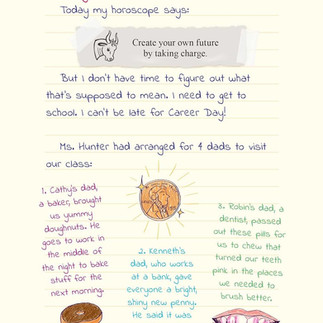 Today my horoscope says:
Create your own future
by taking charge.
But I don't have time to figure out what
that's supposed to mean. I need to get to
school. I can't be late for Career Day!
Ms. Hunter had arranged for 4 dads to visit
our class:
1. Cathy's dad,
a baker, brought
us yummy
doughnuts. He
goes to work in
the middle of
the night to bake
stuff for the
next morning.
2. Kenneth's
dad, who works
at a bank, gave
everyone a bright,
shiny new penny.
He said it was
3. Robin's dad, a
dentist, passed
out these pills for
us to chew that
turned our teeth
pink in the places
we needed to
brush better.